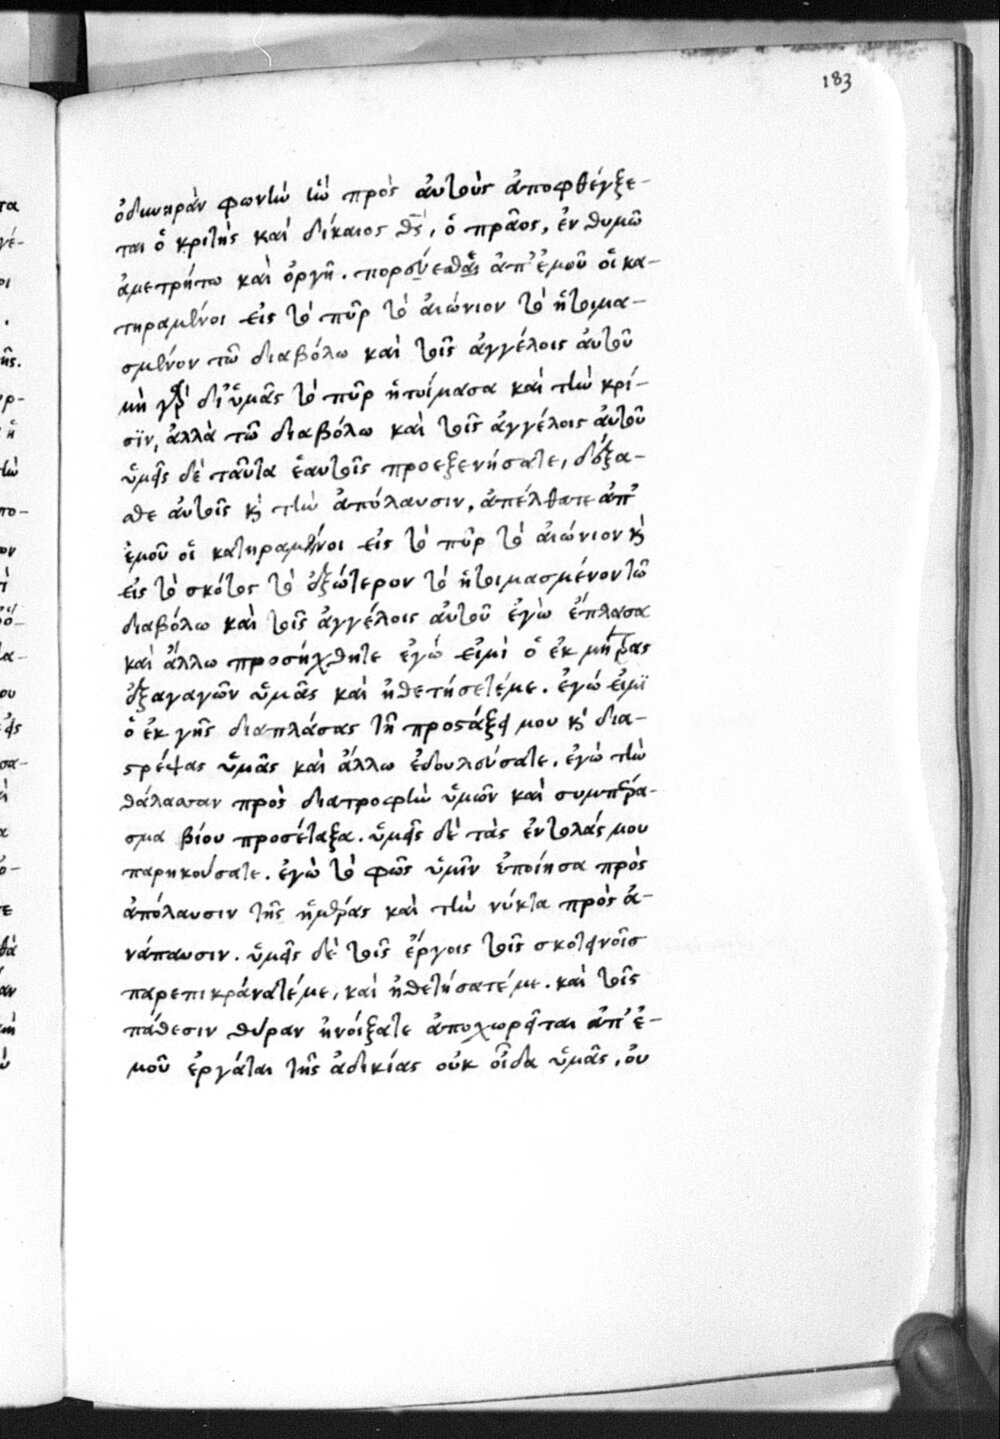 183
ὀδυνηρὰν φωνὴν ἣν πρὸς αὐτοὺς ἀποφθέγξε-
ται ὁ κριτὴς καὶ δίκαιος θς, ὁ πρᾶος, ἐν θυμῶ
ἀμετρήτω καὶ ὀργῆ. πορεύεσθαι ἀπ' ἐμοῦ οἱ κα-
τηραμένοι εἰς τὸ πῦρ τὸ αἰώνιον τὸ ἡτοιμα-
σμένον τῶ διαβόλω καὶ τοῖς ἀγγέλοις αὐτοῦ
μὴ γὰρ δι ὑμᾶς τὸ πῦρ ἡτοίμασα καὶ τὴν κρί-
σϊν, ἀλλὰ τῶ διαβόλω καὶ τοῖς ἀγγέλοις αὐτοῦ
ὑμεῖς δὲ ταῦτα ἑαυτοῖς προεξενήσατε, δέξα-
σθε αὐτοῖς κὶ τὴν ἀπόλαυσιν, ἀπέλθατε ἀπ'
ἐμοῦ οἱ κατηραμένοι εἰς τὸ πῦρ τὸ αἰώνιον κὶ
εἰς τὸ σκότος τὸ ἐξώτερον τὸ ἡτοιμασμένον τῶ
διαβόλω καὶ τοῖς ἀγγέλοις αὐτοῦ ἐγὼ ἔπλασα
καὶ ἄλλω προσήχθητε ἐγώ εἰμὶ ὁ ἐκ μήτρας
ἐξαγαγῶν ὑμᾶς καὶ ἠθετήσετέμε. ἐγώ εἰμϊ
ὁ ἐκ γῆς διαπλάσας τῆ προςάξει μου κὶ δια-
ςρέψας ὑμᾶς καὶ ἄλλω ἐδουλεύσατε. ἐγὼ τὴν
θάλασσαν πρὸς διατροφὴν ὑμῶν καὶ συμπέρα-
σμα βίου προσέταξα. ὑμεῖς δὲ τὰς ἐντολάς μου
παρηκούσατε. ἐγὼ τὸ φῶς ὑμῖν ἐποίησα πρὸς
ἀπόλαυσιν τῆς ἡμέρας καὶ τὴν νύκτα πρὸς ἀ-
νάπαυσιν. ὑμεῖς δὲ τοῖς ἔργοις τοῖς σκοτεινοῖσ
παρεπικράνατέμε, καὶ ἠθετήσατέ με. καὶ τοῖς
πάθεσιν θύραν ἠνοίξατε ἀποχωρεῖται ἀπ' ἐ-
μοῦ ἐργάται τῆς ἀδικίας οὐκ οἶδα ὑμᾶς, οὐ